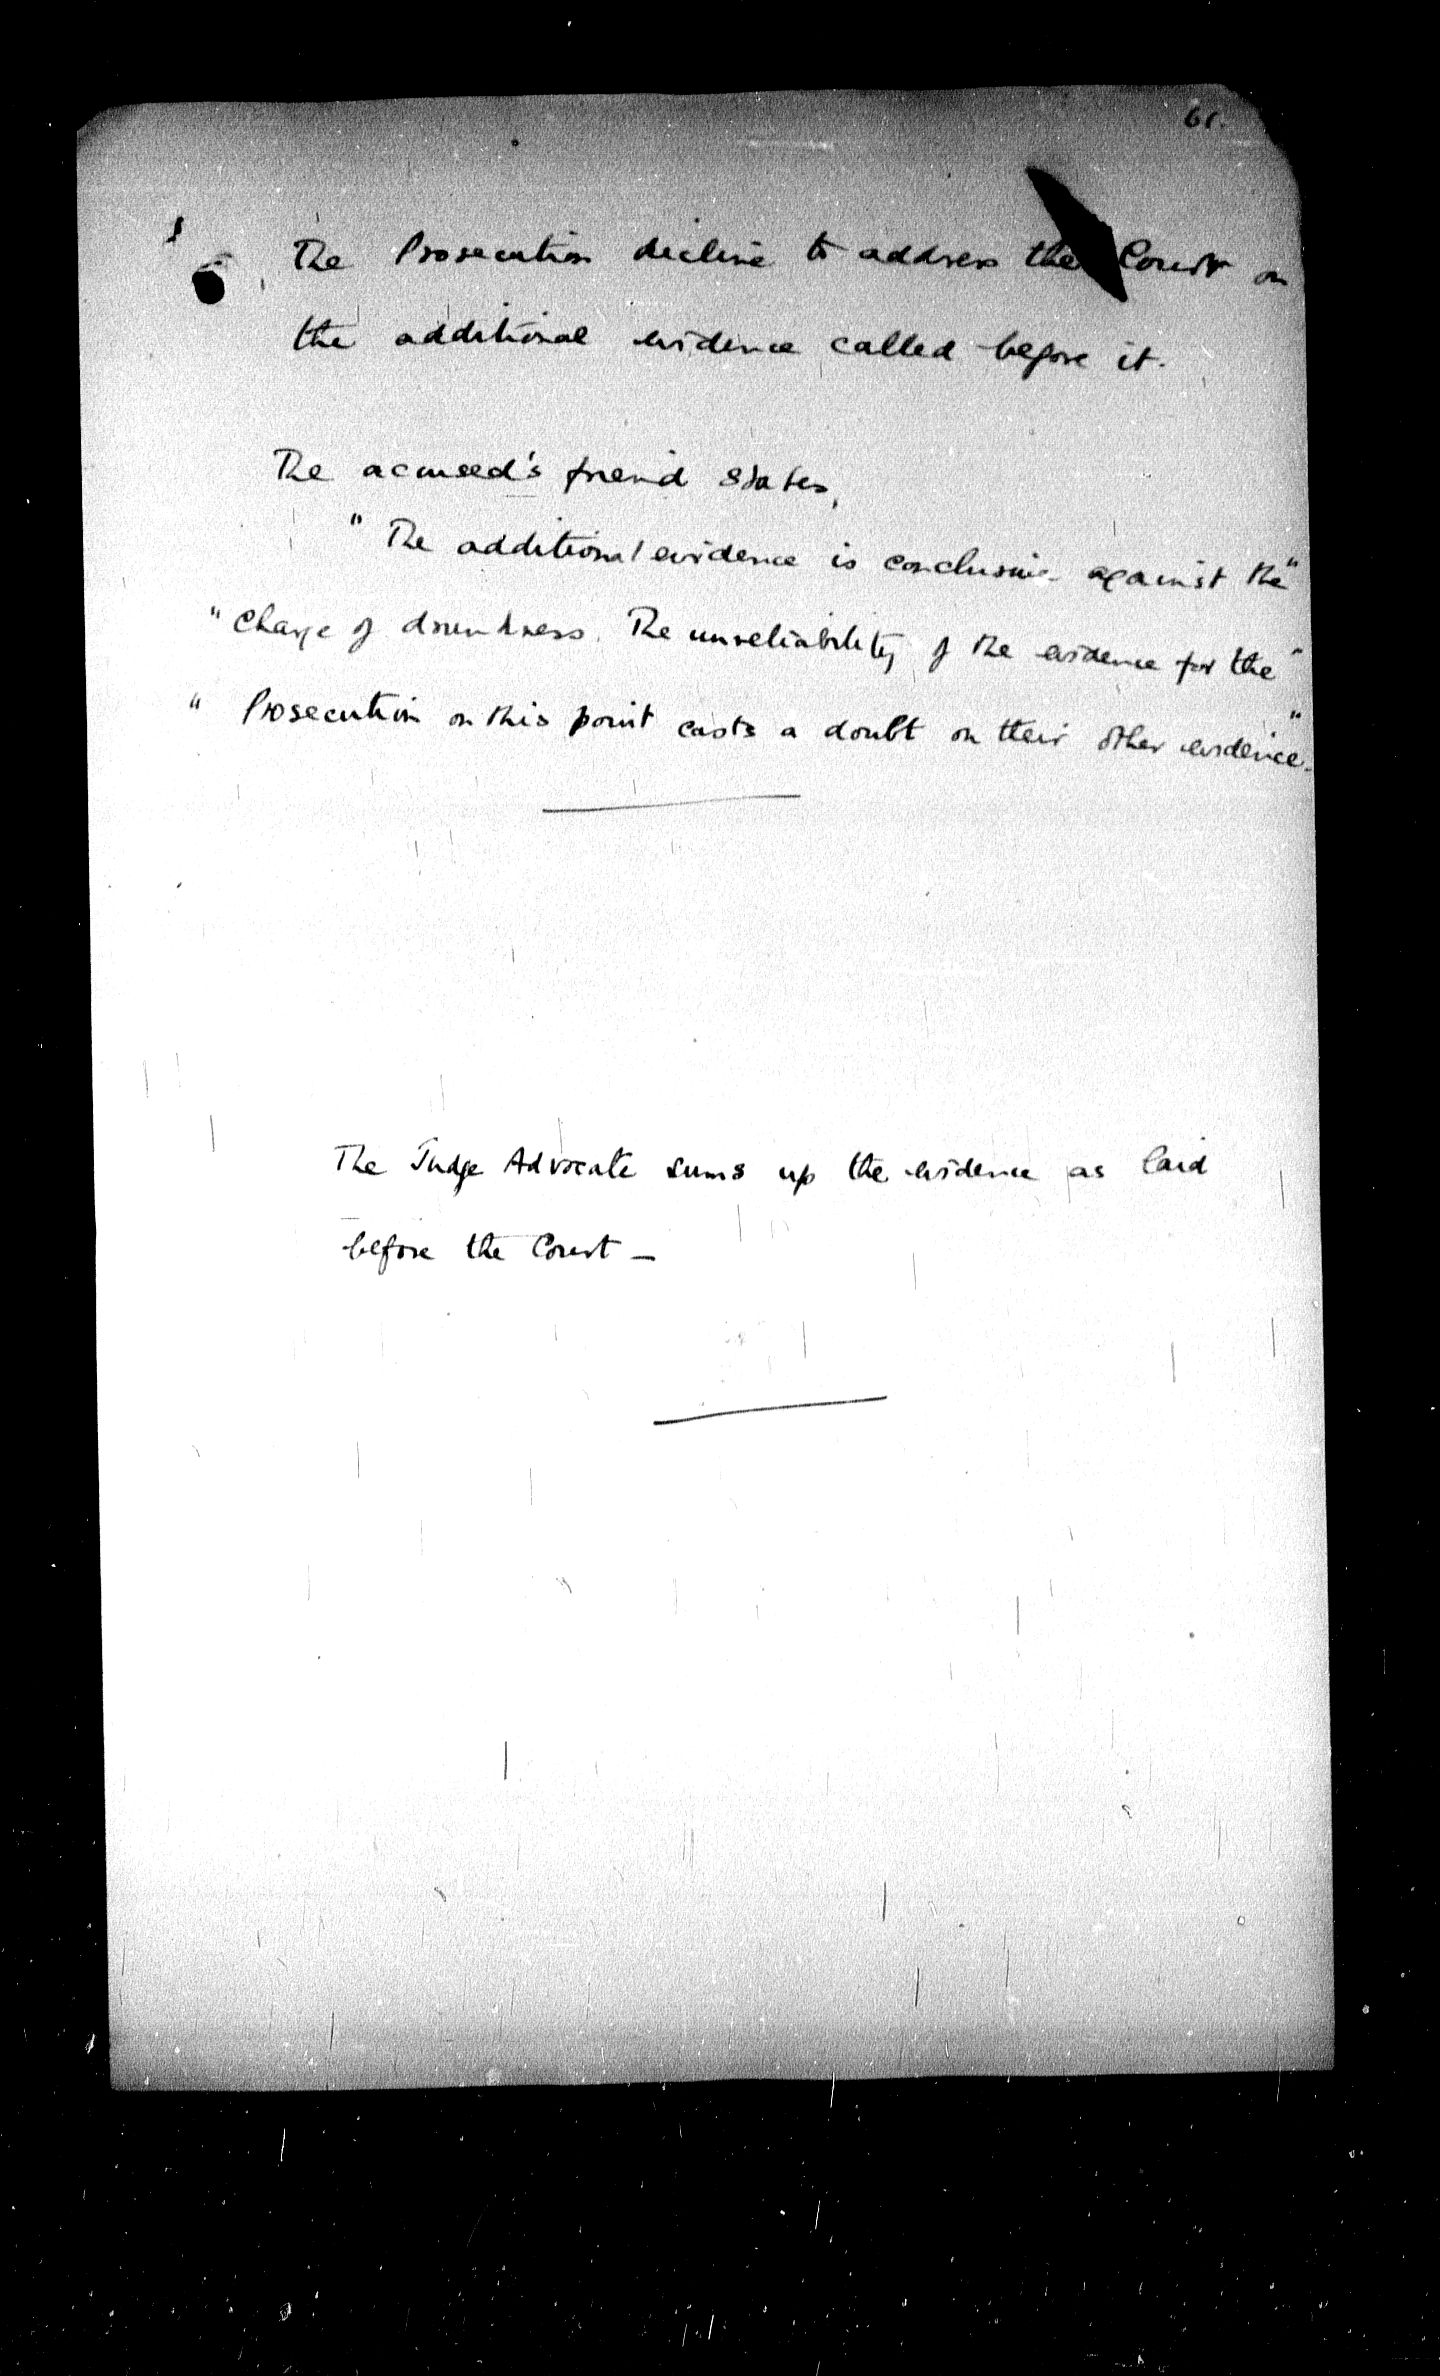 61.
The Prosecution decline to address the Court on
the additional evidence called before it.
The accused's friend states,
" The additional evidence is conclusive against the "
" Charge of drunkness. The unreliability of the evidence for the "
" Prosecution on this point casts a doubt on their other evidence. "
The Judge Advocate sums up the evidence as laid
before the Court —